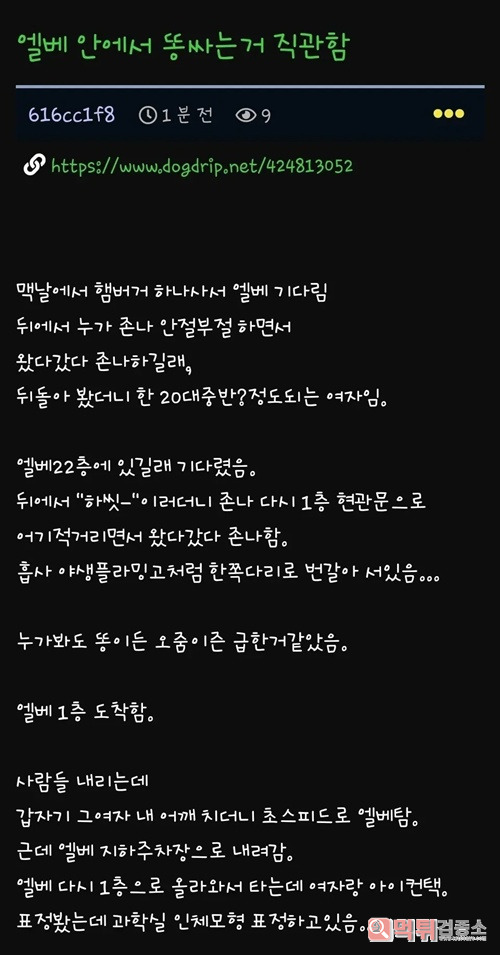 엘베 안에서 똥싸는거 직관함
616cc1f8 1분 전 9
https://www.dogdrip.net/424813052
맥날에서 햄버거 하나사서 엘베 기다림
뒤에서 누가 존나 안절부절 하면서
왔다갔다 존나하길래,
뒤돌아 봤더니 한 20대중반?정도되는 여자임.
엘베22층에 있길래 기다렸음.
뒤에서 "하씻-"이러더니 존나 다시 1층 현관문으로
어기적거리면서 왔다갔다 존나함.
흡사 야생플라밍고처럼 한쪽다리로 번갈아 서있음...
누가봐도 똥이든 오줌이즌 급한거같았음.
엘베 1층 도착함.
사람들 내리는데
갑자기 그여자 내 어깨 치더니 초스피드로 엘베탐.
근데 엘베 지하주차장으로 내려감.
엘베 다시 1층으로 올라와서 타는데 여자랑 아이컨택.
표정봤는데 과학실 인체모형 표정하고있음.
먹튀검증소